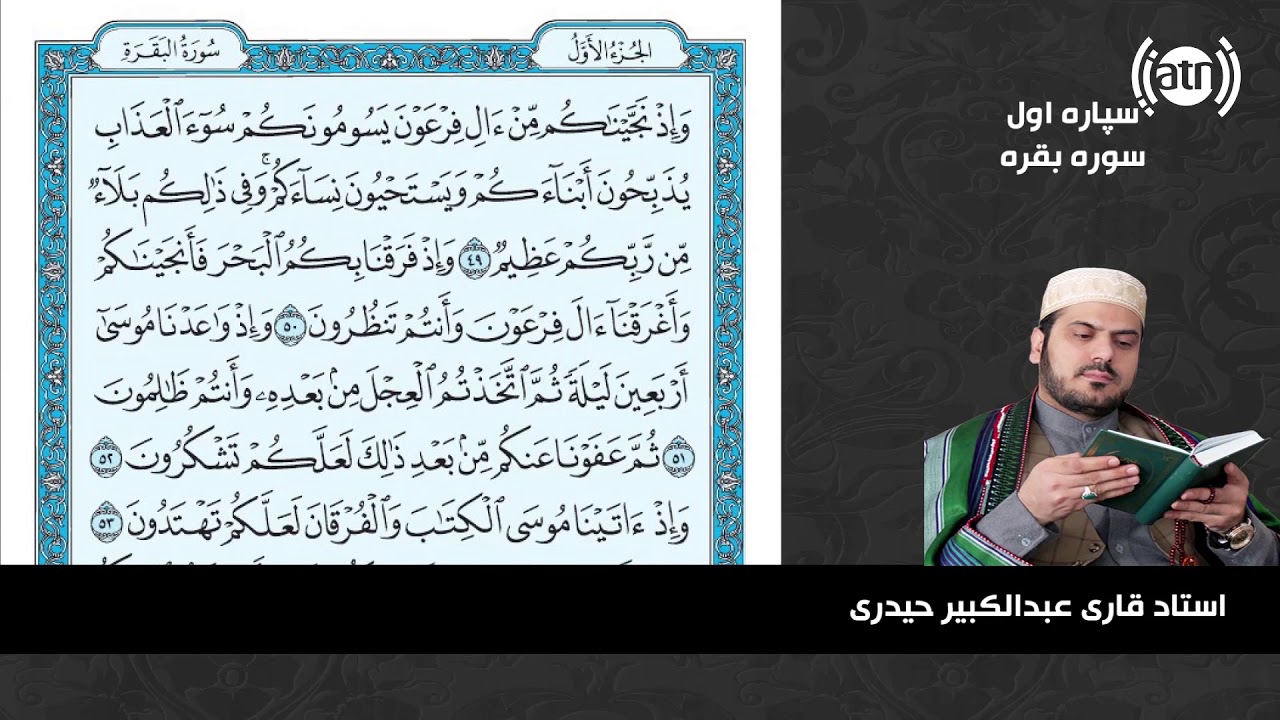 الجُزْءُ الأَوَّلُ
سُورَةُ البَقَرَةِ
وَإِذْ نَجَّيْنَٰكُم مِّنْ ءَالِ فِرْعَوْنَ يَسُومُونَكُمْ سُوٓءَ ٱلْعَذَابِ
يُذَبِّحُونَ أَبْنَآءَكُمْ وَيَسْتَحْيُونَ نِسَآءَكُمْ ۚ وَفِى ذَٰلِكُم بَلَآءٌ
مِّن رَّبِّكُمْ عَظِيمٌ ٤٩ وَإِذْ فَرَقْنَا بِكُمُ ٱلْبَحْرَ فَأَنجَيْنَٰكُمْ
وَأَغْرَقْنَآ ءَالَ فِرْعَوْنَ وَأَنتُمْ تَنظُرُونَ ٥٠ وَإِذْ وَٰعَدْنَا مُوسَىٰٓ
أَرْبَعِينَ لَيْلَةً ثُمَّ ٱتَّخَذْتُمُ ٱلْعِجْلَ مِنۢ بَعْدِهِۦ وَأَنتُمْ ظَٰلِمُونَ
٥١ ثُمَّ عَفَوْنَا عَنكُم مِّنۢ بَعْدِ ذَٰلِكَ لَعَلَّكُمْ تَشْكُرُونَ ٥٢
وَإِذْ ءَاتَيْنَا مُوسَى ٱلْكِتَٰبَ وَٱلْفُرْقَانَ لَعَلَّكُمْ تَهْتَدُونَ ٥٣
atn
سپاره اول
سوره بقره
استاد قاری عبدالکبیر حیدری